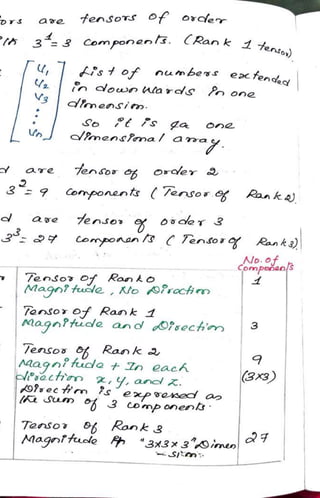 ors are tensors of order
ith 3¹=3 components. (Rank 1 tensor)
V₁
V₂
V₃
Vn
List of numbers extended
in down wards in one
dimension.
So it is a one
dimensional array.
d are tensor of order 2
3²=9 components (Tensor of Rank 2)
d are tensor of order 3
3³=27 components (Tensor of Rank 3)
No. of
Components
Tensor of Rank 0
Magnitude, No Direction
1
Tensor of Rank 1
Magnitude and Direction
3
Tensor of Rank 2
Magnitude + In each
direction x, y, and z.
Direction is expressed as
the sum of 3 components.
9
(3x3)
Tensor of Rank 3
Magnitude "3x3x3" Dimen
-sion
27